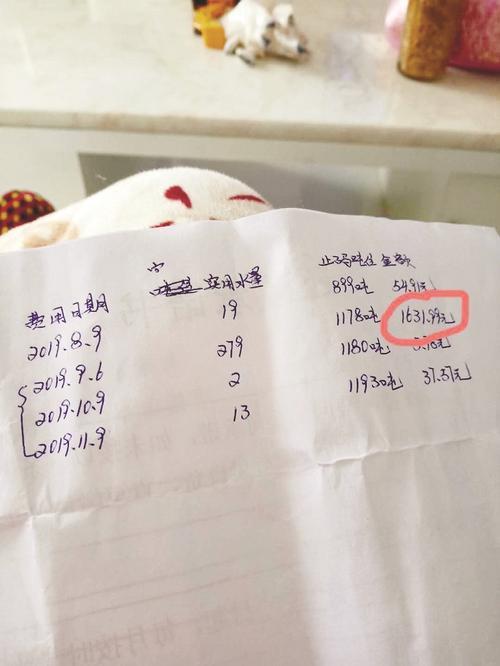 费用日期 实用水量 止码吨位 金额
2019.8.9 19 899吨 54.91元
2019.9.6 279 1178吨 1631.99元
2019.10.9 2 1180吨 5.78元
2019.11.9 13 1193吨 37.57元